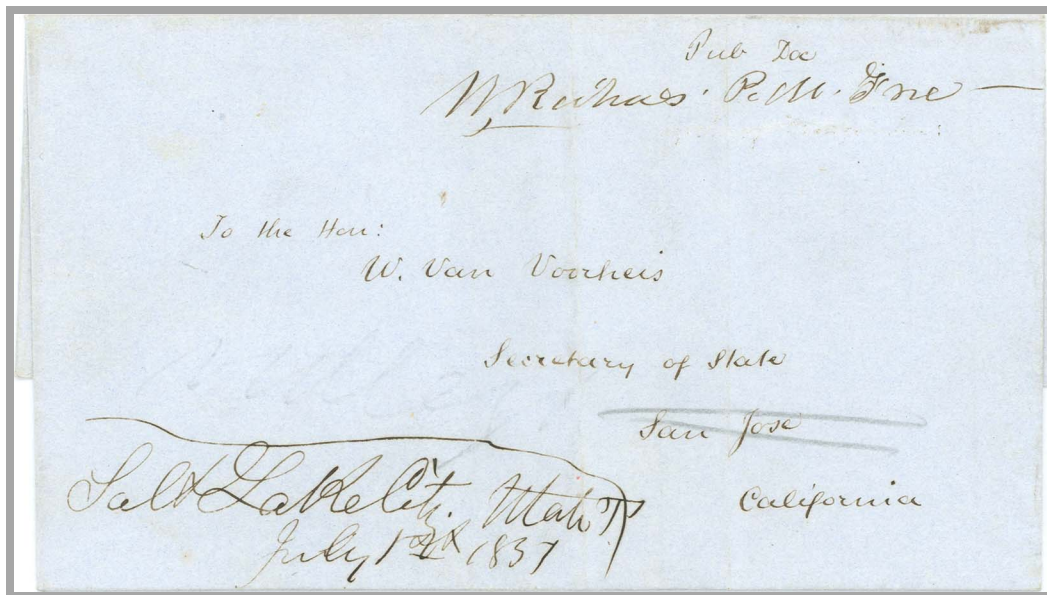 Pub Doc
P.M. Free
To the Hon:
W. Van Voorheis
Secretary of State
San José
California
Salt Lake City. Utah T
July 1st 1857